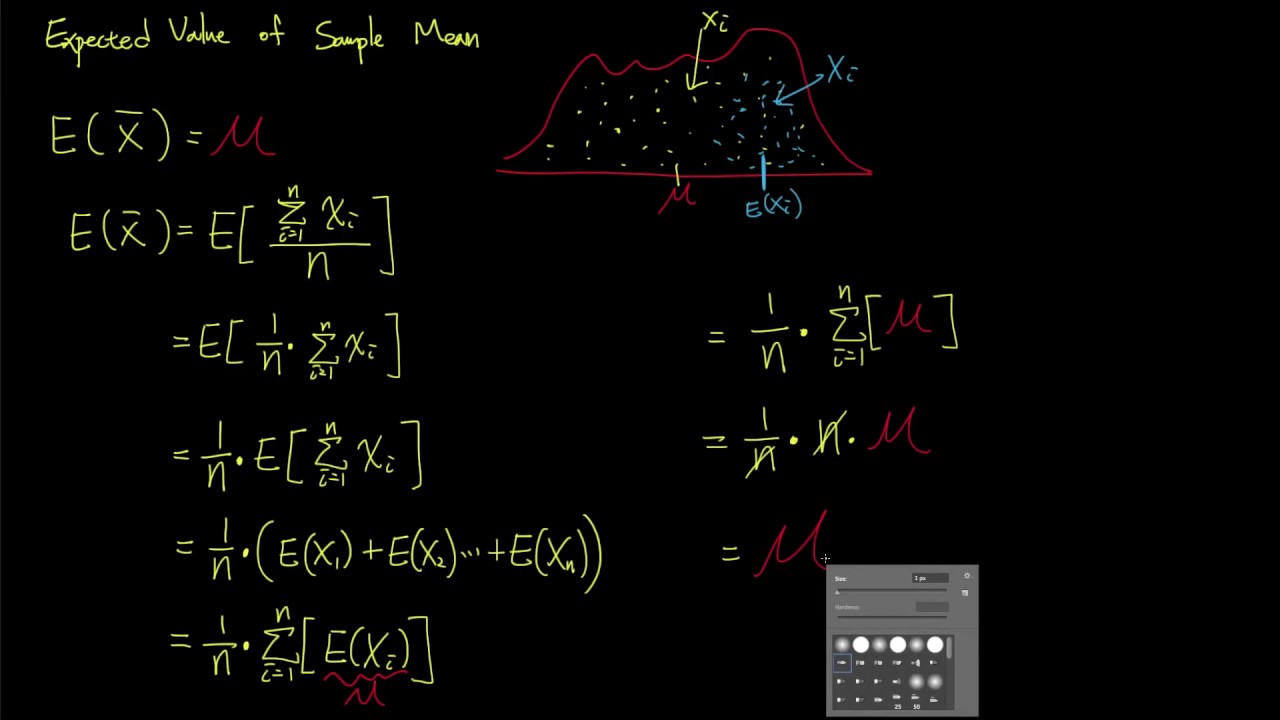 Expected Value of Sample Mean
E(X̄) = μ
E(x̄) = E[ Σ_{i=1}^{n} Xi / n ]
= E[ 1/n · Σ_{i=1}^{n} Xi ]
= 1/n · E[ Σ_{i=1}^{n} Xi ]
= 1/n · (E(X₁) + E(X₂) ... + E(Xn))
= 1/n · Σ_{i=1}^{n} [E(Xi)]
μ
Xi
Xi
μ
E(Xi)
= 1/n · Σ_{i=1}^{n} [μ]
= 1/n · n · μ
= μ
Size: 1 px
Hardness:
25 50